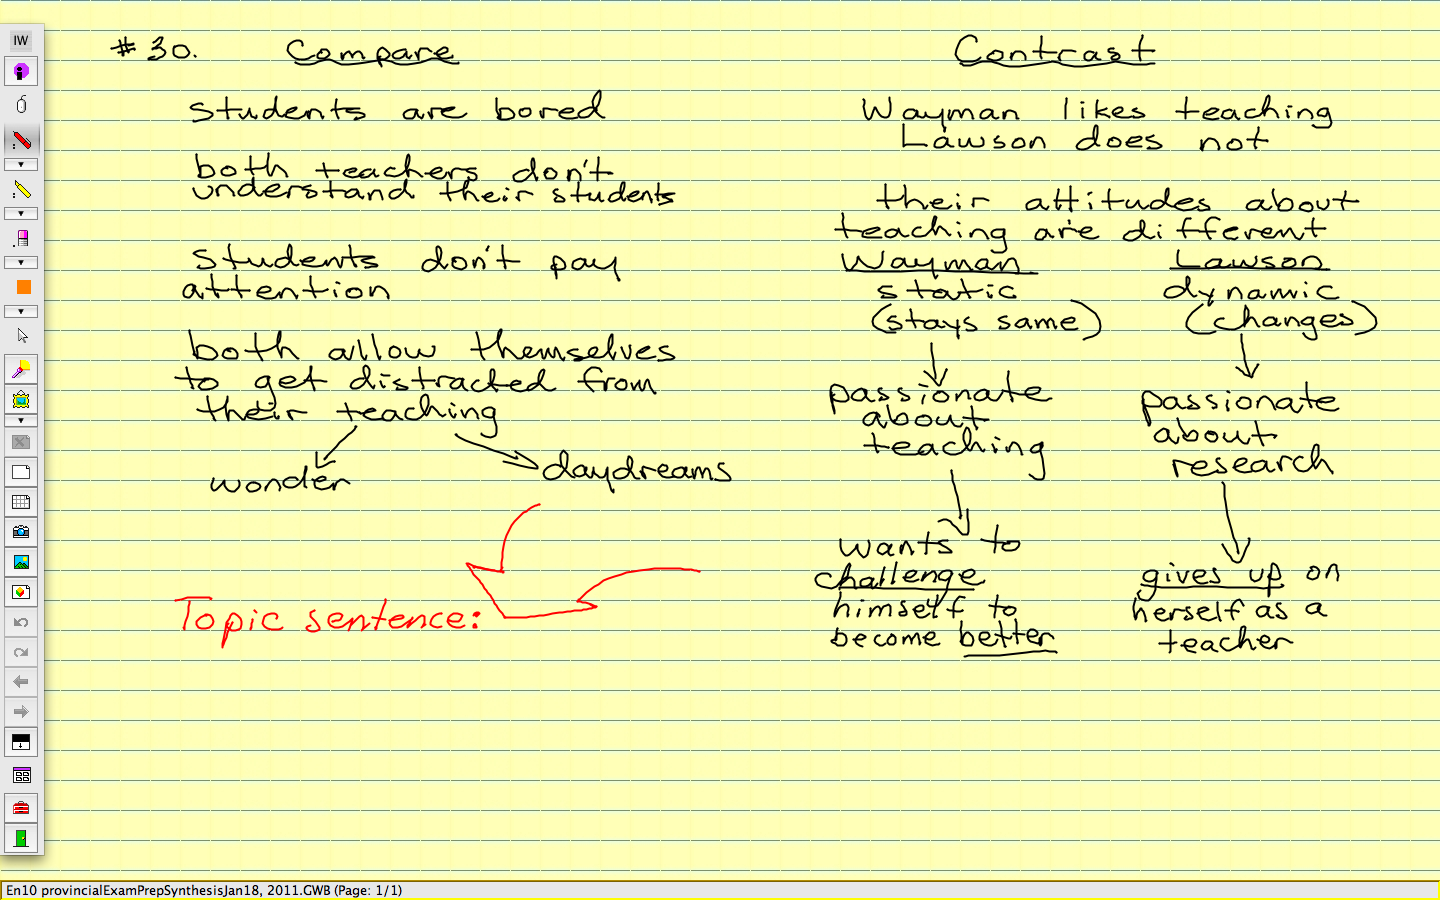 IW
# 30.
Compare
students are bored
both teachers don't
understand their students
students don't pay
attention
both allow themselves
to get distracted from
their teaching
wonder
daydreams
Topic sentence:
Contrast
Wayman likes teaching
Lawson does not
their attitudes about
teaching are different
Wayman
static
(stays same)
passionate
about
teaching
wants to
challenge
himself to
become better
Lawson
dynamic
(changes)
passionate
about
research
gives up on
herself as a
teacher
En10 provincialExamPrepSynthesisJan18, 2011.GWB (Page: 1/1)